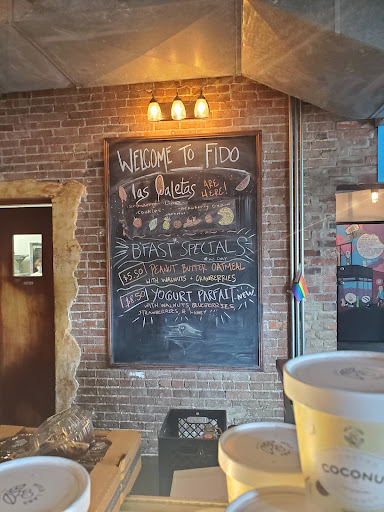 WELCOME TO FIDO
las Paletas ARE HERE!
BFAST SPECIALS
$5.50 PEANUT BUTTER OATMEAL
WITH WALNUTS + CRANBERRIES
$8.50 YOGURT PARFAIT NEW
WITH WALNUTS, BLUEBERRIES,
STRAWBERRIES, & HONEY!!!
COCONUT